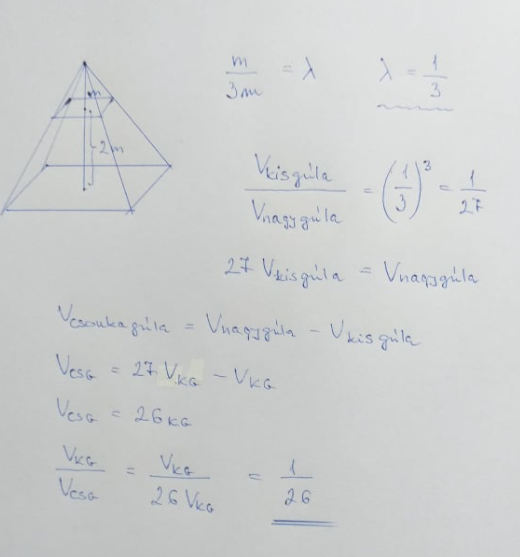 m
2m
m/3m = λ    λ = 1/3
Vkisgúla/Vnagygúla = (1/3)³ = 1/27
27 Vkisgúla = Vnagygúla
Vcsonkagúla = Vnagygúla - Vkisgúla
VCSG = 27 VKG - VKG
VCSG = 26 KG
VKG/VCSG = VKG/26 VKG = 1/26